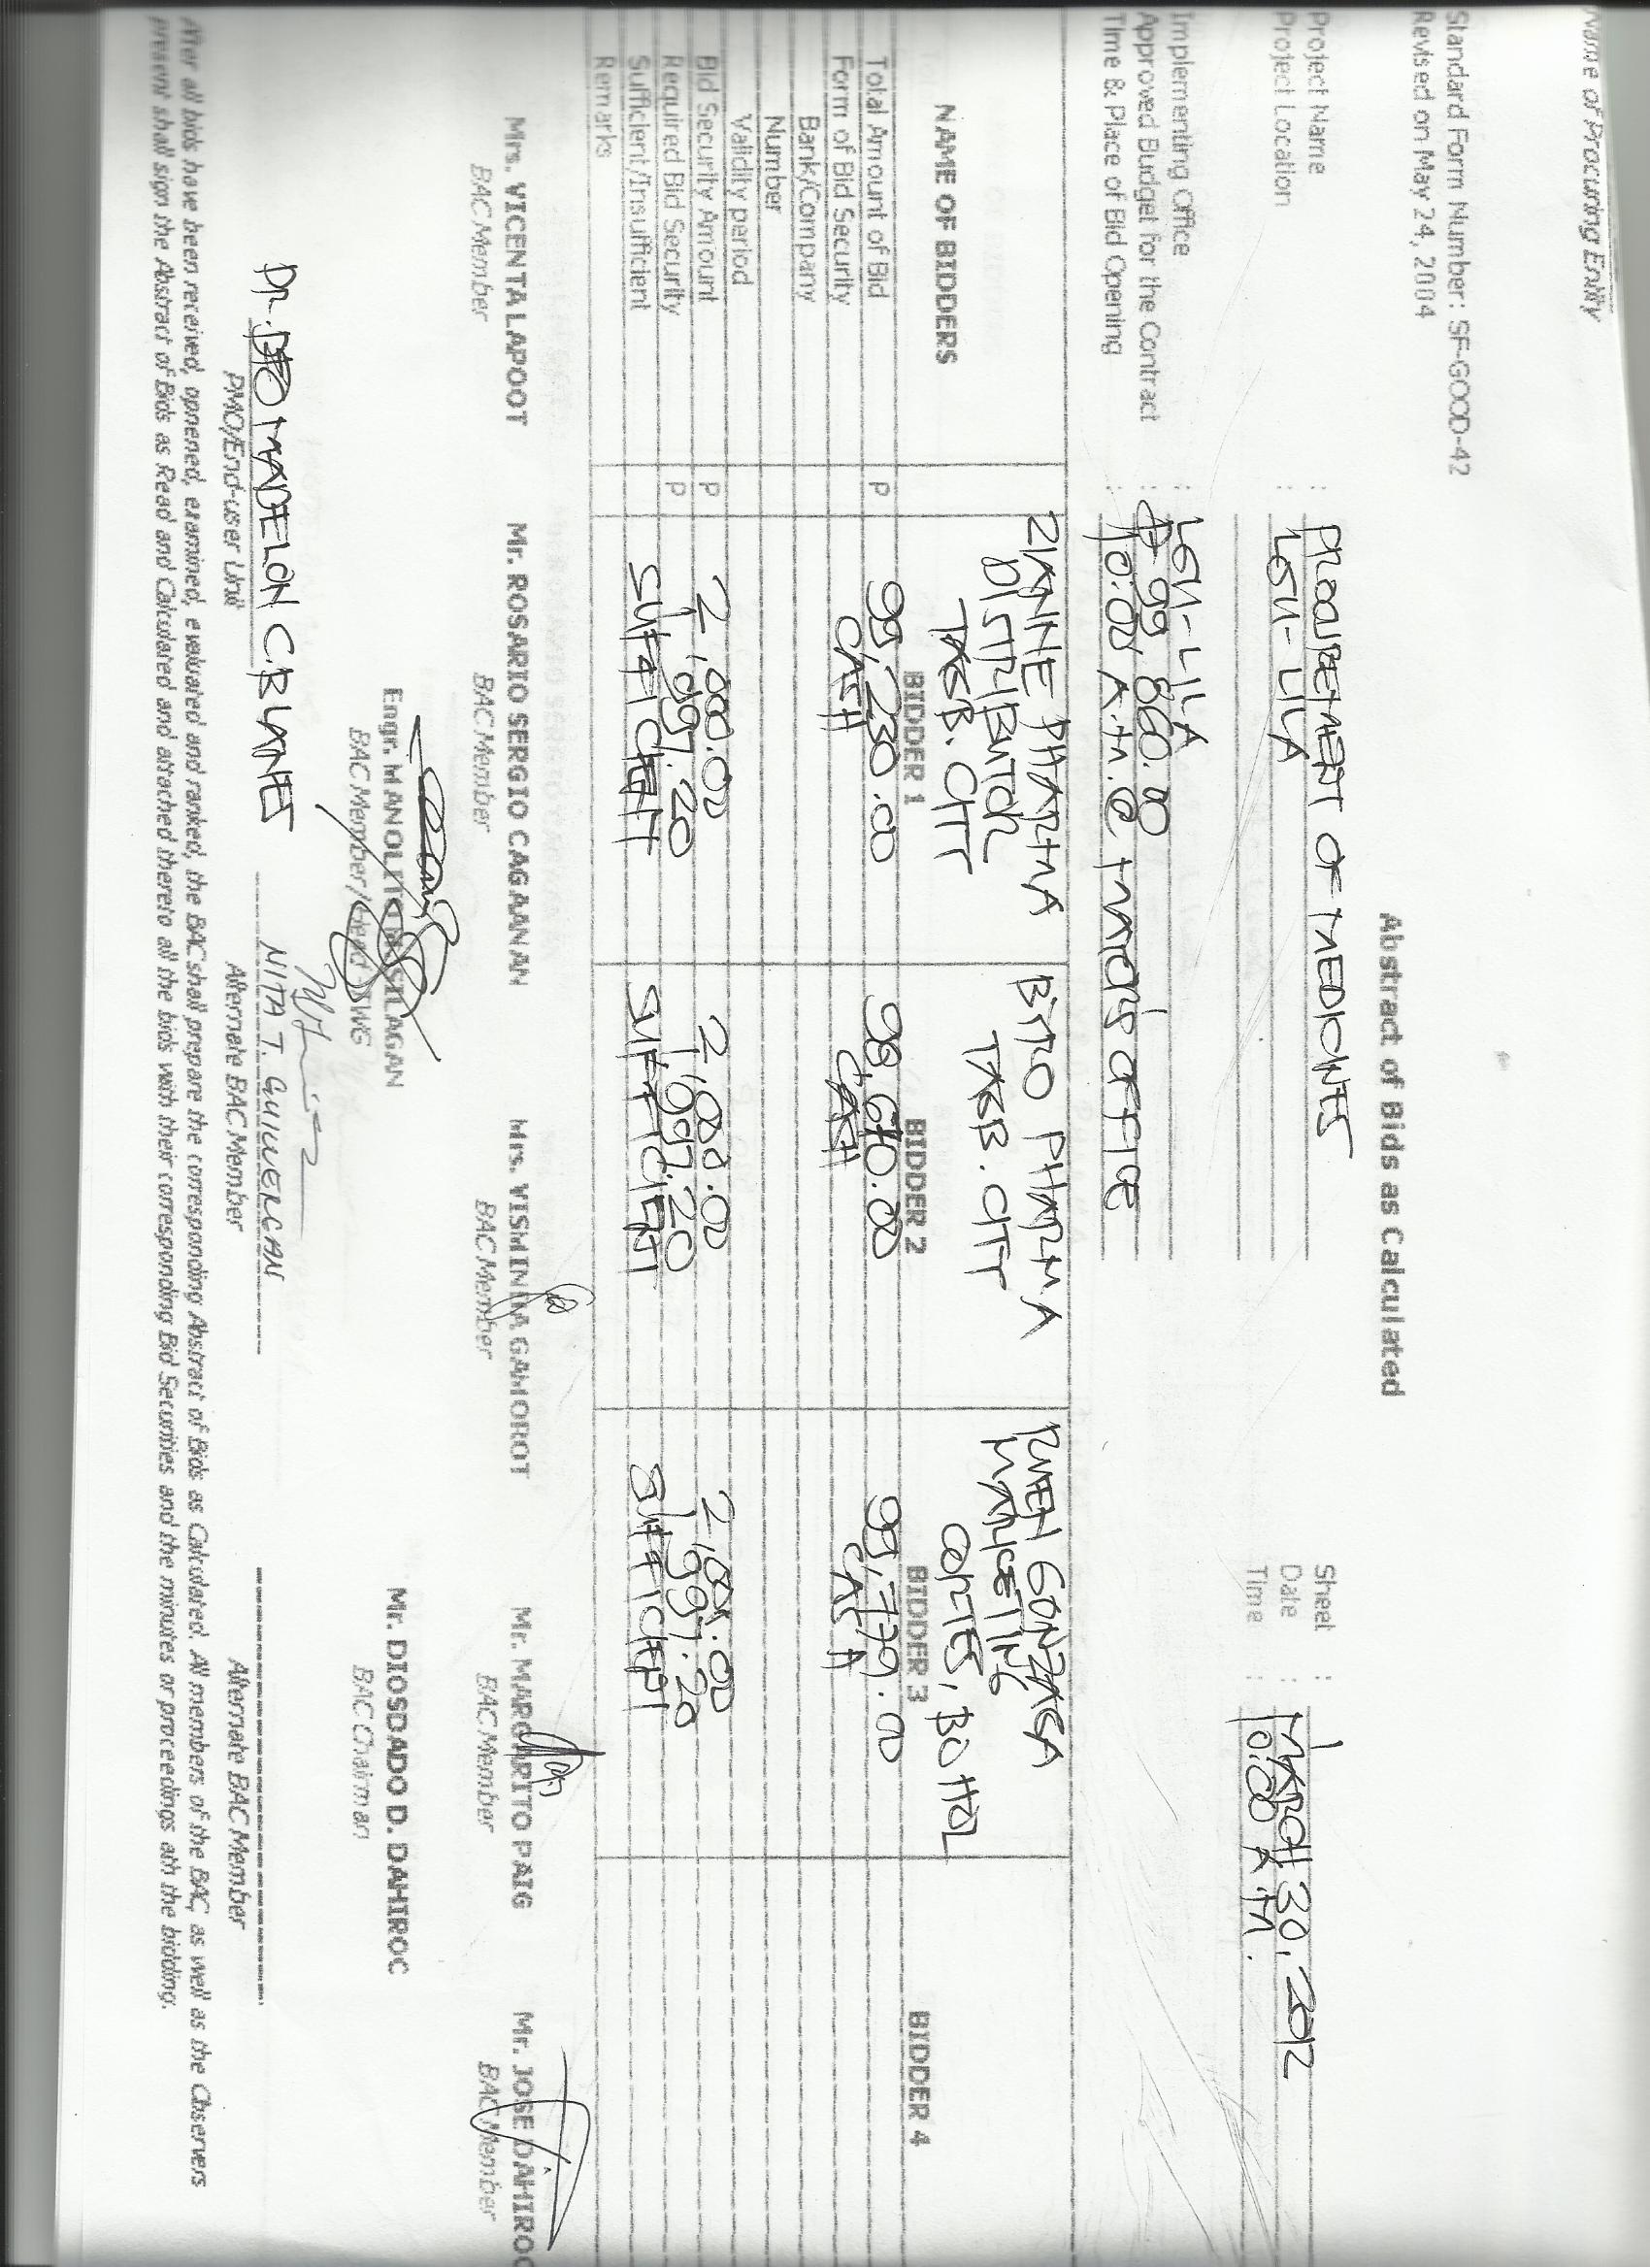 Name of Procuring Entity
Standard Form Number: SF-GOOD-42
Revised on May 24, 2004
Abstract of Bids as Calculated
Project Name : PROCUREMENT OF MEDICINES
Project Location : LGU-LILA
Sheet :
Date : MARCH 30, 2012
Time : 10:00 A.M.
Implementing Office : LGU-LILA
Approved Budget for the Contract : ₱ 99,860.00
Time & Place of Bid Opening : 10:00 A.M. @ MAYOR'S OFFICE
ZIANNE PHARMA BITO PHARMA RUBEN GONZAGA
DISTRIBUTOR TAGB. CITY MARKETING
NAME OF BIDDERS TAGB. CITY CORTES, BOHOL
BIDDER 1 BIDDER 2 BIDDER 3 BIDDER 4
Total Amount of Bid P 99,230.00 98,610.00 99,779.00
Form of Bid Security CASH CASH CASH
Bank/Company
Number
Validity period
Bid Security Amount P 2,000.00 2,000.00 2,000.00
Required Bid Security P 1,997.20 1,997.20 1,997.20
Sufficient/Insufficient SUFFICIENT SUFFICIENT SUFFICIENT
Remarks
Mrs. VICENTA LAPOOT Mr. ROSARIO SERGIO CAGAANAN Mrs. VISMINIA GAHOROT Mr. MARGARITO PAIG Mr. JOSE DAHIROC
BAC Member BAC Member BAC Member BAC Member BAC Member
Engr. MANOLITO INSILAGAN Mr. DIOSDADO D. DAHIROC
BAC Member/Head TWG BAC Chairman
Dr. MADELON C. BLANES NITA T. GUIWERCAN
PMO/End-user Unit Alternate BAC Member Alternate BAC Member
After all bids have been received, opnened, examined, evaluated and ranked, the BAC shall prepare the corresponding Abstract of Bids as Calculated. All members of the BAC, as well as the Observers
present shall sign the Abstract of Bids as Read and Calculated and attached thereto all the bids with their corresponding Bid Securities and the minutes or proceedings ath the bidding.